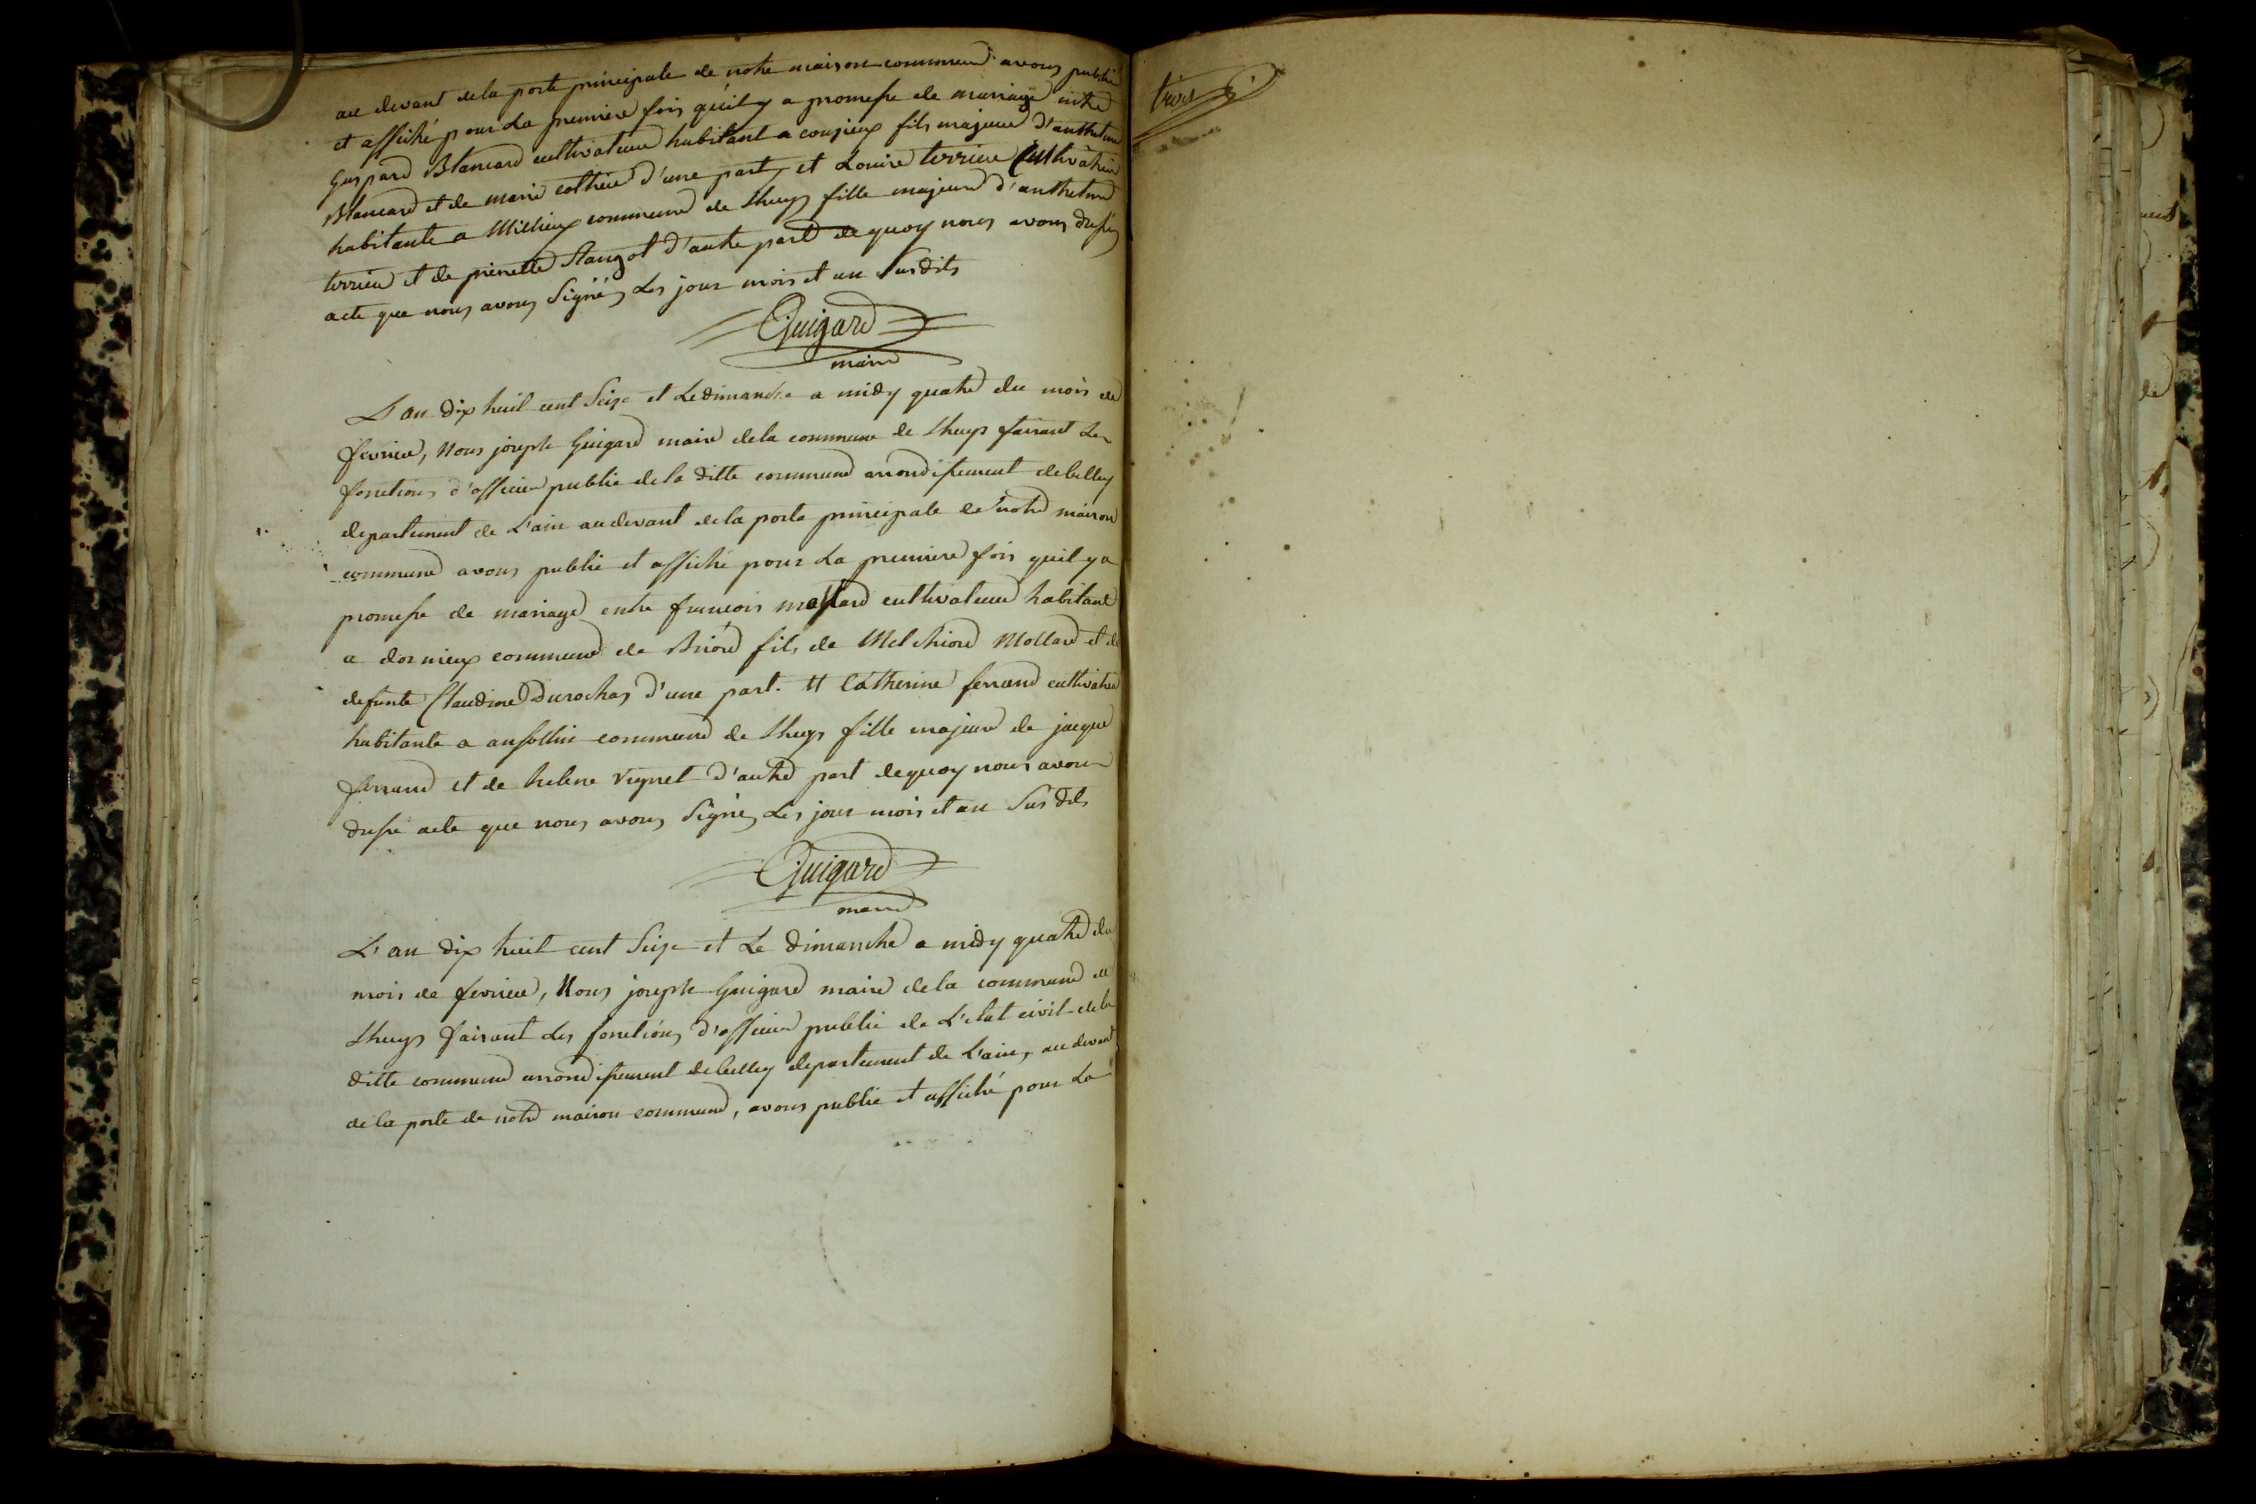 au devant de la porte principale de notre maison commune avons publié
et affiché pour La premiere fois qu'il y a promesse de mariage entre
Gaspard Blancard cultivateur habitant a coujieux fils majeur d'anthelme
Blancard et de marie d'une part, et Louise terrier Cultivatrice
habitante a Millieux commune de Lhuys fille majeure d'anthelme
terrier et de pierrette d'autre part de quoy nous avons dressé
acte que nous avons Signé, Les jour mois et an Susdits
Guigard
maire
L'an dix huit cent Seize et Le dimanche a midy quatre du mois de
fevrier, Nous joseph Guigard maire de la commune de Lhuys faisant Les
fonctions d'officier public de la ditte commune arrondissement de belley
departement de L'ain au devant de la porte principale de notre maison
commune avons publié et affiché pour La premiere fois qu'il y a
promesse de mariage entre francois mollard cultivateur habitant
a dornieux commune de Briord fils de Melchiord Mollard et de
defunte Claudine Durochas d'une part. Et Catherine ferrand cultivatrice
habitante a ansollin commune de Lhuys fille majeure de jacque
ferrand et de helene vignet d'autre part de quoy nous avons
dressé acte que nous avons Signé, Les jour mois et an Susdits
Guigard
maire
L'an dix huit cent Seize et Le dimanche a midy quatre du
mois de fevrier, Nous joseph Guigard maire de la commune de
Lhuys faisant Les fonctions d'officier public de L'etat civil de la
ditte commune arrondissement de belley departement de L'ain, au devant
de la porte de notre maison commune, avons publié et affiché pour La
trois